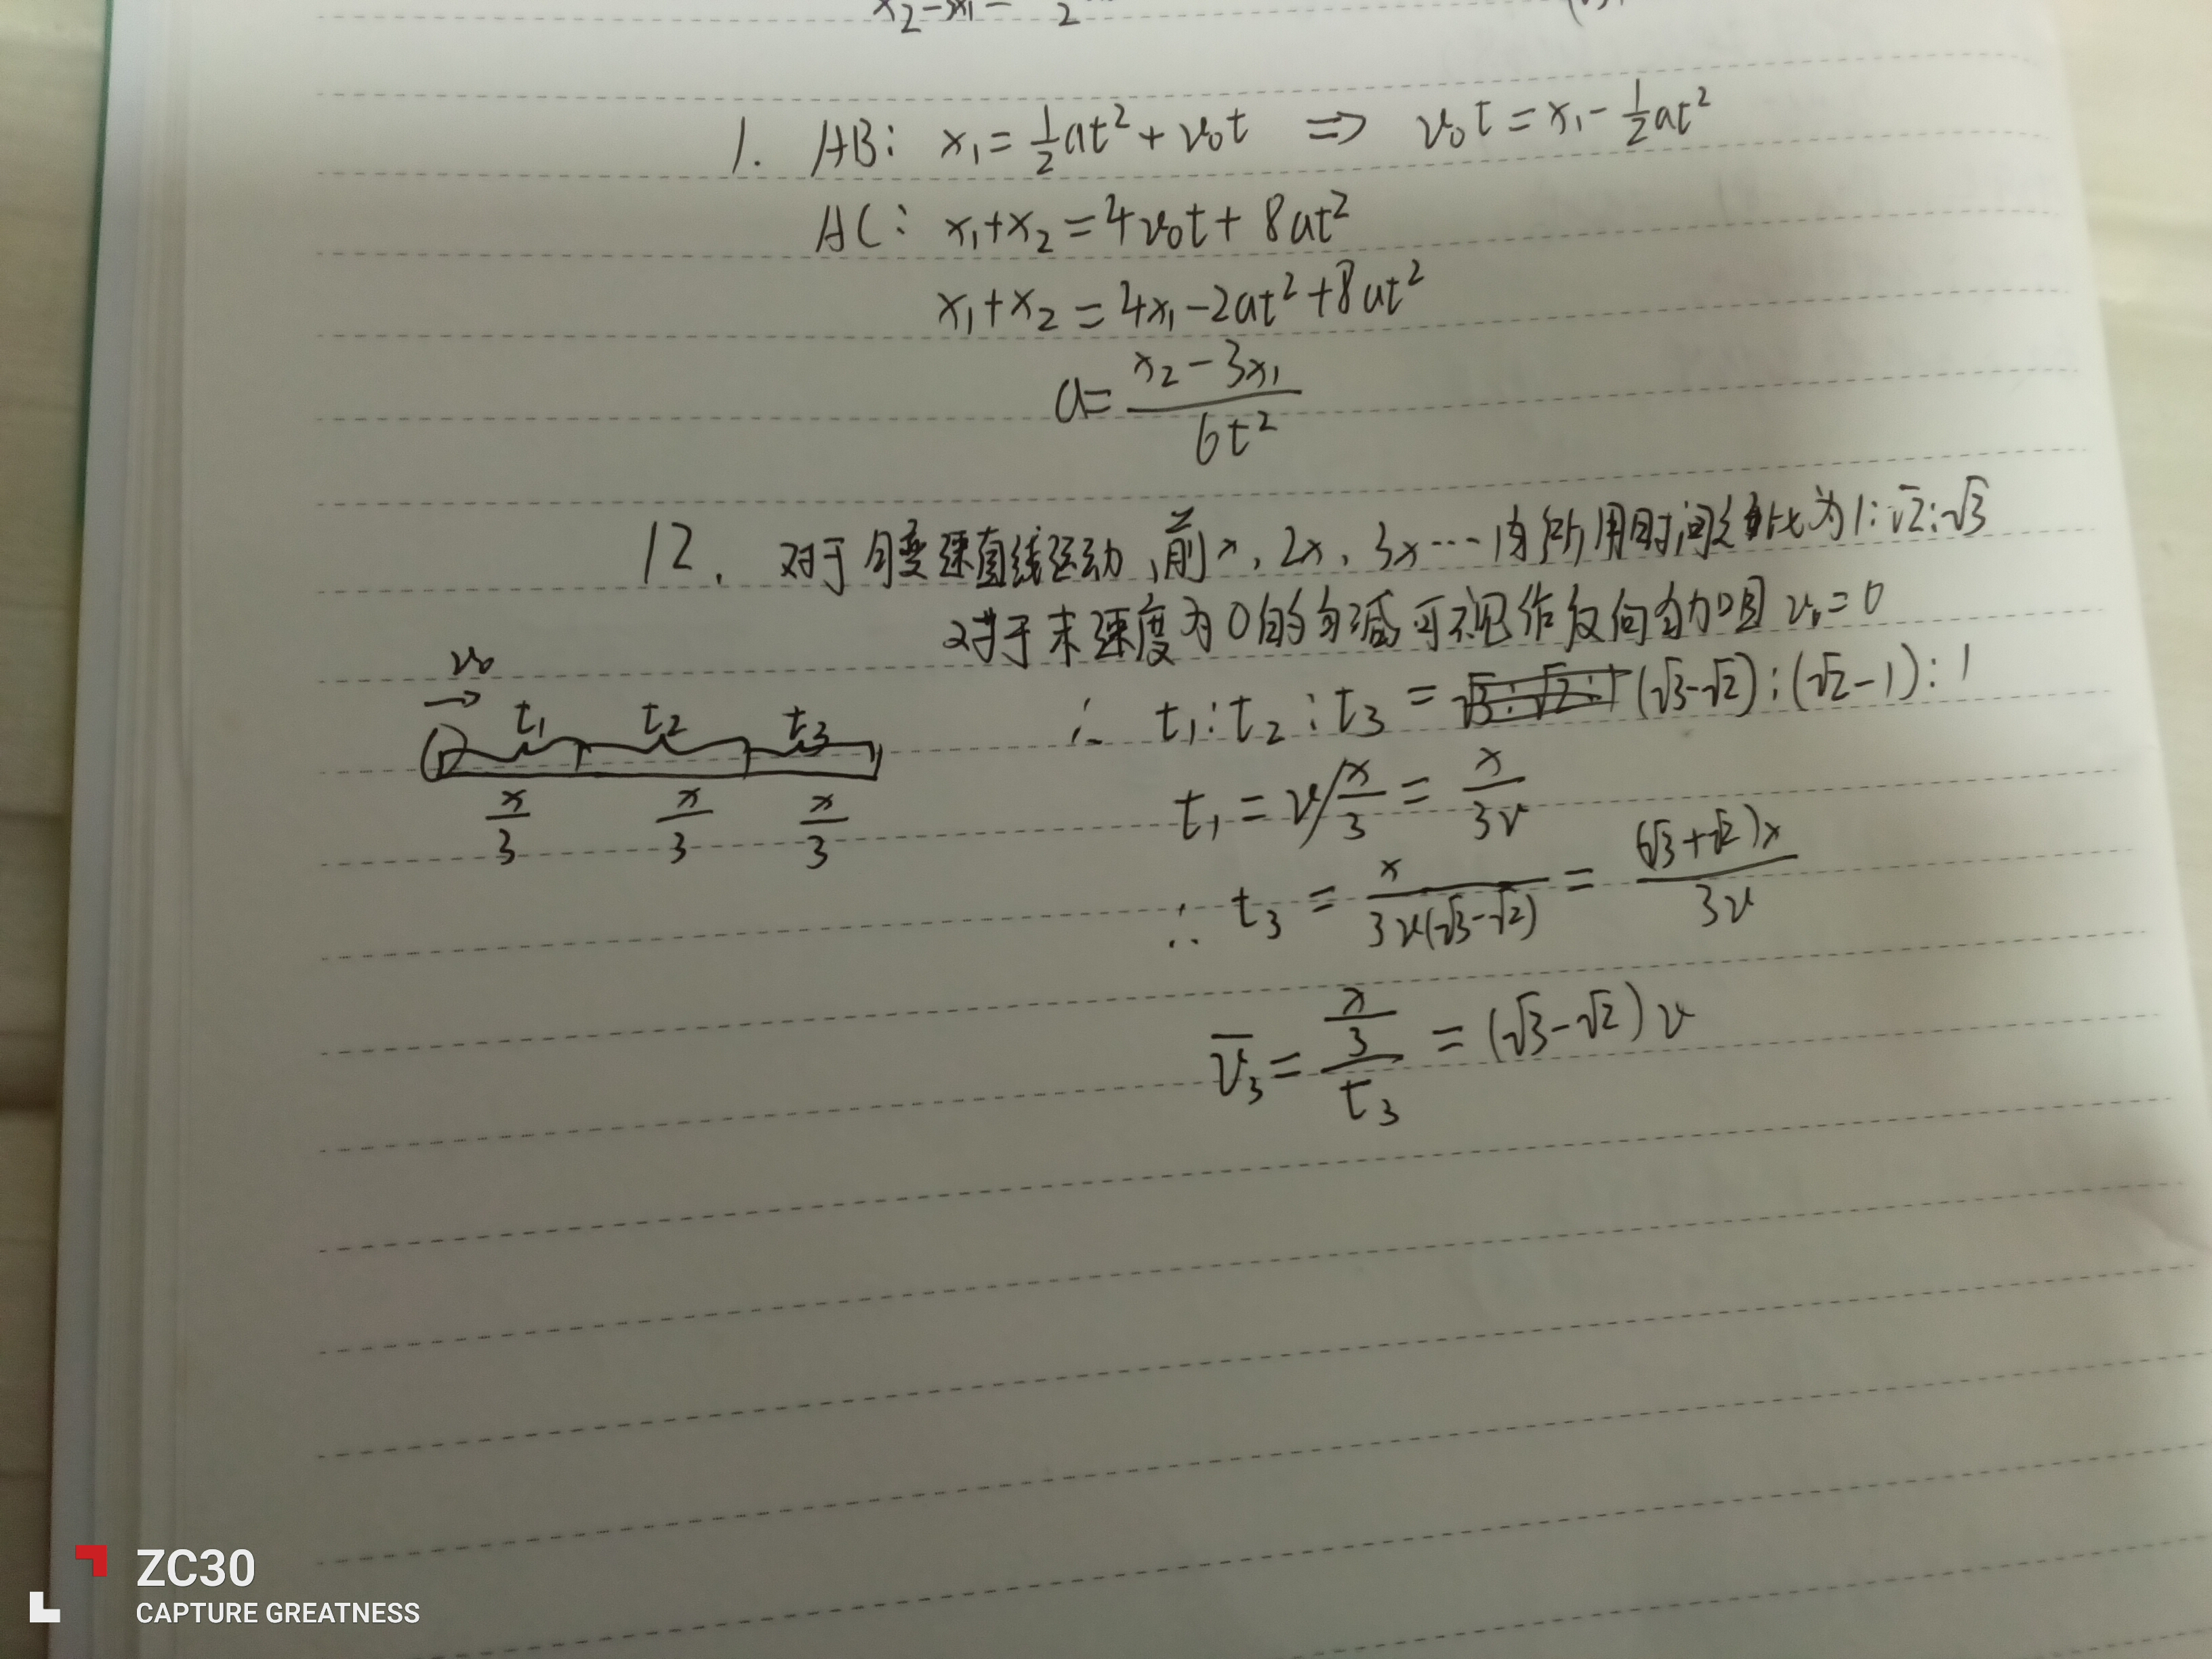 x₂-3x₁= 2
1. AB: x₁=½at²+v₀t ⇒ v₀t=x₁-½at²
AC: x₁+x₂=4v₀t+8at²
x₁+x₂=4x₁-2at²+8at²
a=(x₂-3x₁)/6t²
12. 对于匀变速直线运动,前x,2x,3x…内所用时间之比为1:√2:√3
对于末速度为0的匀减可视作反向匀加且v₀=0
∴ t₁:t₂:t₃=(√3-√2):(√2-1):1
v₀
t₁ t₂ t₃
x/3 x/3 x/3
t₁=v/(x/3)=x/3v
∴ t₃=x/3v(√3-√2)=(√3+√2)x/3v
v̅₃=(x/3)/t₃=(√3-√2)v
ZC30
CAPTURE GREATNESS